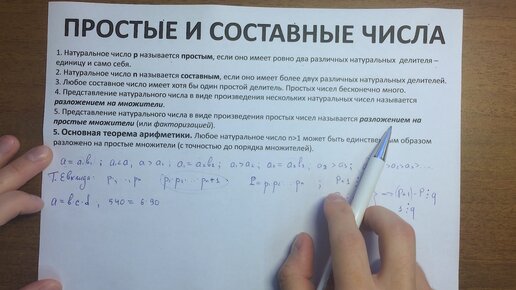 ПРОСТЫЕ И СОСТАВНЫЕ ЧИСЛА
1. Натуральное число p называется простым, если оно имеет ровно два различных натуральных делителя –
единицу и само себя.
2. Натуральное число n называется составным, если оно имеет более двух различных натуральных делителей.
3. Любое составное число имеет хотя бы один простой делитель. Простых чисел бесконечно много.
4. Представление натурального числа в виде произведения нескольких натуральных чисел называется
разложением на множители.
5. Представление натурального числа в виде произведения простых чисел называется разложением на
простые множители (или факторизацией).
5. Основная теорема арифметики. Любое натуральное число n>1 может быть единственным образом
разложено на простые множители (с точностью до порядка множителей).
a = a₁b₁ a₁<a, a>a₁ a₁=a₂b₂ a₁>a₂
Т. Евклида:
a=b·c·d, 540 = 6·90